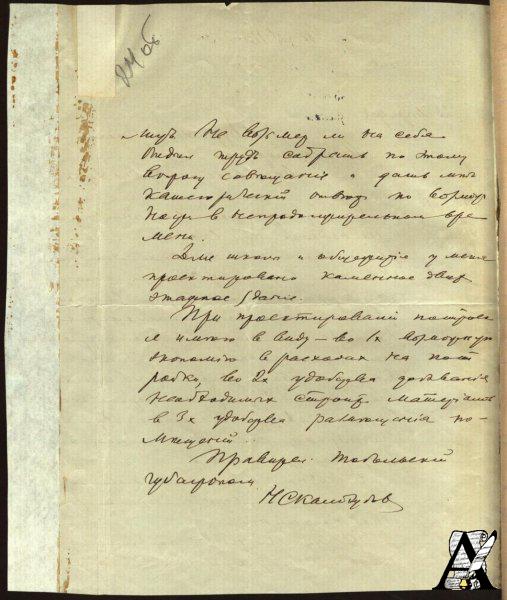 не возьмет ли на себя
труд собрать по этому
вопросу совещание и дать мне
категорический ответ по возмож
ности в непродолжительном вре
мени.
Для школы и общежития у меня
проектировано каменное двух
этажное здание.
При проектировании построек
я имею в виду – во 1х возможную
экономию в расходах на пост
ройко, во 2х удобства добывания
необходимых строит. материалов
в 3х удобства размещения по-
мещений.
Тобольский
губагроном